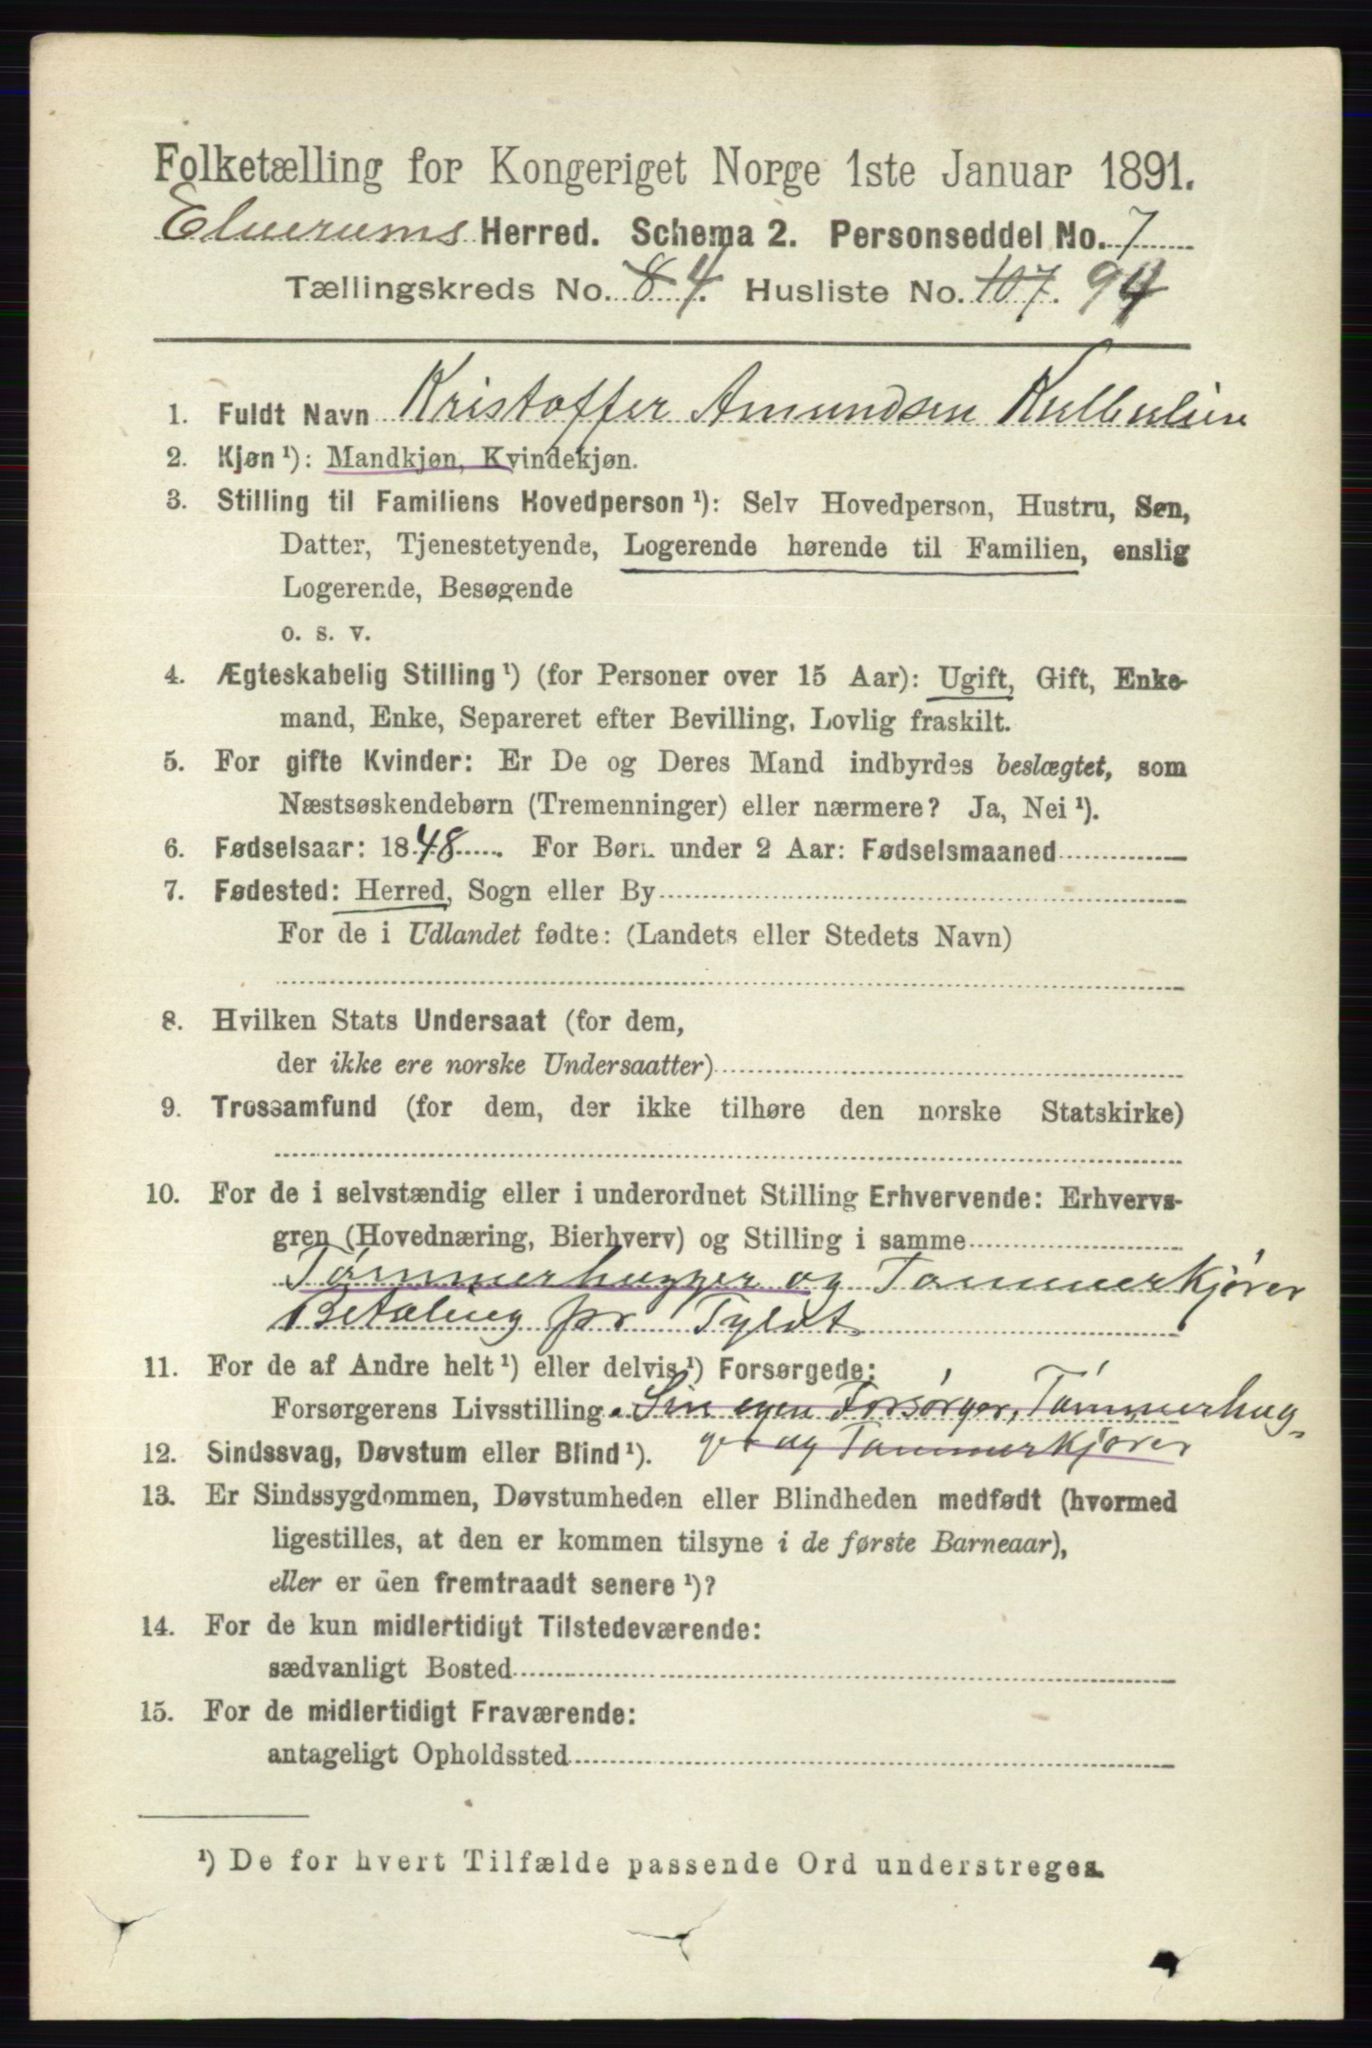 Folketælling for Kongeriget Norge 1ste Januar 1891.
Elverums Herred. Schema 2. Personseddel No. 7
Tællingskreds No. 8 4. Husliste No. 107. 94
1. Fuldt Navn Kristoffer Amundsen
2. Kjøn ¹): Mandkjøn, Kvindekjøn.
3. Stilling til Familiens Hovedperson ¹): Selv Hovedperson, Hustru, Søn,
Datter, Tjenestetyende, Logerende hørende til Familien, enslig
Logerende, Besøgende
o. s. v.
4. Ægteskabelig Stilling ¹) (for Personer over 15 Aar): Ugift, Gift, Enke-
mand, Enke, Separeret efter Bevilling, Lovlig fraskilt.
5. For gifte Kvinder: Er De og Deres Mand indbyrdes beslægtet, som
Næstsøskendebørn (Tremenninger) eller nærmere? Ja, Nei ¹).
6. Fødselsaar: 1848. For Børn under 2 Aar: Fødselsmaaned
7. Fødested: Herred, Sogn eller By
For de i Udlandet fødte: (Landets eller Stedets Navn)
8. Hvilken Stats Undersaat (for dem,
der ikke ere norske Undersaatter)
9. Trossamfund (for dem, der ikke tilhøre den norske Statskirke)
10. For de i selvstændig eller i underordnet Stilling Erhvervende: Erhvervs-
gren (Hovednæring, Bierhverv) og Stilling i samme
Tømmerhugger og Tømmerkjører
Betaling pr Tyldt
11. For de af Andre helt ¹) eller delvis ¹) Forsørgede:
Forsørgerens Livsstilling. Sin egen Forsørger, Tømmerhug-
ger og Tømmerkjører
12. Sindssvag, Døvstum eller Blind ¹).
13. Er Sindssygdommen, Døvstumheden eller Blindheden medfødt (hvormed
ligestilles, at den er kommen tilsyne i de første Barneaar),
eller er den fremtraadt senere ¹)?
14. For de kun midlertidigt Tilstedeværende:
sædvanligt Bosted
15. For de midlertidigt Fraværende:
antageligt Opholdssted
¹) De for hvert Tilfælde passende Ord understreges.